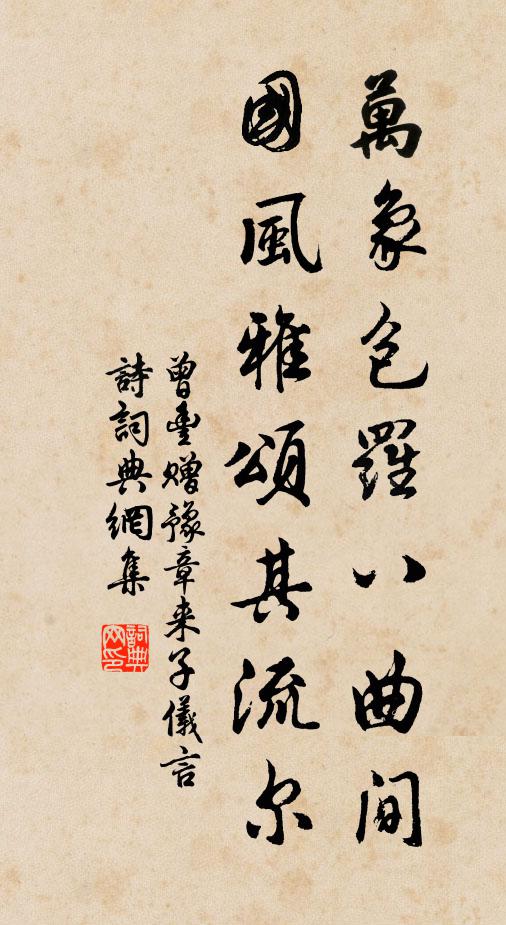 萬象包羅八曲間
國風雅頌其流尔
曾豊贈豫章来子儀言
詩詞典網集
詞典网印